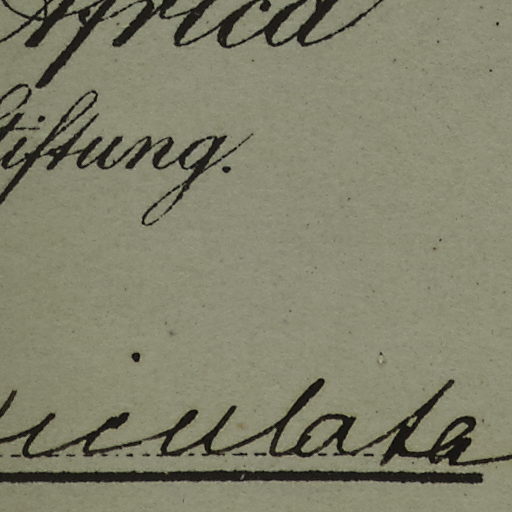 Africa
tiftung.
iculata